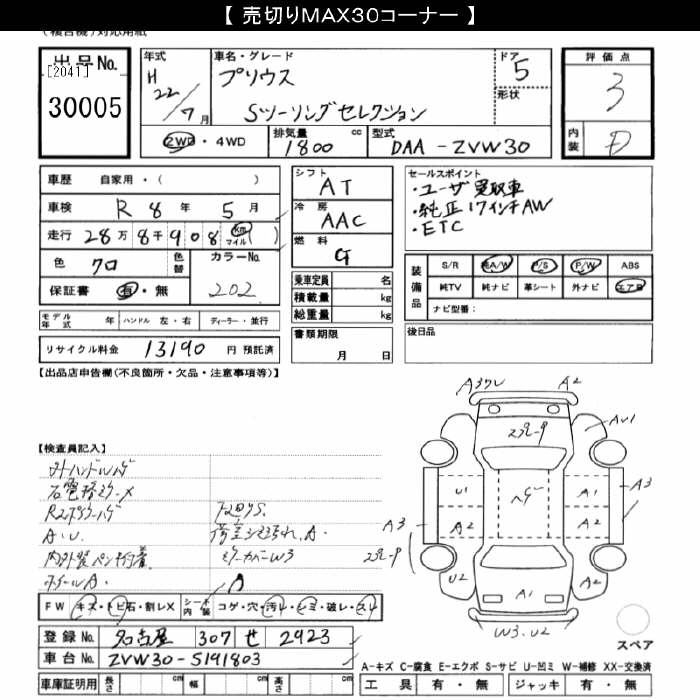 【 売切りMAX30コーナー 】
(複合機)対応用紙
出品No.
[2041]
30005
年式
H
22/7月
車名・グレード
プリウス
Sツーリングセレクション
ドア
5
形状
評価点
3
内装
D
2WD・4WD
排気量
1800
cc
型式
DAA-ZVW30
車歴 自家用・( )
車検 R 8 年 5 月
走行 28万8千908 km マイル ( )
色 クロ
色替
カラーNo.
202
保証書 有・無
モデル年式 年
ハンドル 左・右
ディーラー・並行
リサイクル料金 13190 円 預託済
シフト
AT
冷房
AAC
燃料
G
乗車定員 名
積載量 kg
総重量 kg
書類期限
月 日
セールスポイント
・ユーザー買取車
・純正17インチAW
・ETC
装備品
S/R 純A/W P/S P/W ABS
純TV 純ナビ 革シート 外ナビ エアB
ナビ型番:
後日品
【出品店申告欄(不良箇所・欠品・注意事項等)】
【検査員記入】
内外装ペンキ付着
ホイールA.
ミラーカバーW3
A.U.
FW キズ・トビ石・割レX
シート内装 コゲ・穴・汚レ・シミ・破レ・スレ
登録No. 名古屋 307 せ 2923
車台No. ZVW30-5191803
車庫証明用 長さ cm 幅 cm 高さ cm
A2
U1
A2
A1
A2
A3
A3
U2
A2
A1
W3.U2
スペア
A-キズ C-腐食 E-エクボ S-サビ U-凹ミ W-補修 XX-交換済
工具 有・無 ジャッキ 有・無